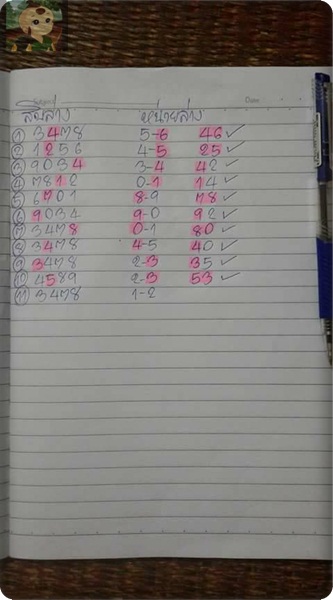 Subject Date
สิบล่าง หน่วยล่าง
① 3478 5-6 46 ✓
② 1256 4-5 25 ✓
③ 9034 3-4 42 ✓
④ 7812 0-1 14 ✓
⑤ 6701 8-9 78 ✓
⑥ 9034 9-0 92 ✓
⑦ 3478 0-1 80 ✓
⑧ 3478 4-5 40 ✓
⑨ 3478 2-3 35 ✓
⑩ 4589 2-3 53 ✓
⑪ 3478 1-2